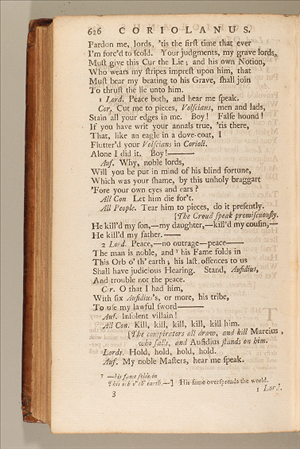 626 CORIOLANUS.
Pardon me, lords, 'tis the first time that ever
I'm forc'd to scold. Your judgments, my grave lords,
Must give this Cur the Lie; and his own Notion,
Who wears my stripes imprest upon him, that
Must bear my beating to his Grave, shall join
To thrust the lie unto him.
1 Lord. Peace both, and hear me speak.
Cor. Cut me to pieces, Volscians, men and lads,
Stain all your edges in me. Boy! False hound!
If you have writ your annals true, 'tis there,
That, like an eagle in a dove-coat, I
Flutter'd your Volscians in Corioli.
Alone I did it. Boy!———
Auf. Why, noble lords,
Will you be put in mind of his blind fortune,
Which was your shame, by this unholy braggart
'Fore your own eyes and ears?
All Con. Let him die for't.
All People. Tear him to pieces, do it presently.
[The Croud speak promiscuously.
He kill'd my son,—my daughter,—kill'd my cousin,—
He kill'd my father.———
2 Lord. Peace,—no outrage—peace——
The man is noble, and his Fame folds in
This Orb o' th' earth; his last offences to us
Shall have judicious Hearing. Stand, Aufidius,
And trouble not the peace.
Cor. O that I had him,
With six Aufidius's, or more, his tribe,
To use my lawful sword——
Auf. Insolent villain!
All Con. Kill, kill, kill, kill, kill him.
[The conspirators all draw, and kill Marcius,
who falls, and Aufidius stands on him.
Lords. Hold, hold, hold, hold.
Auf. My noble Masters, hear me speak.
—his fame folds in
This orb o' th' earth.—] His fame overspreads the world.
3 1 Lord.